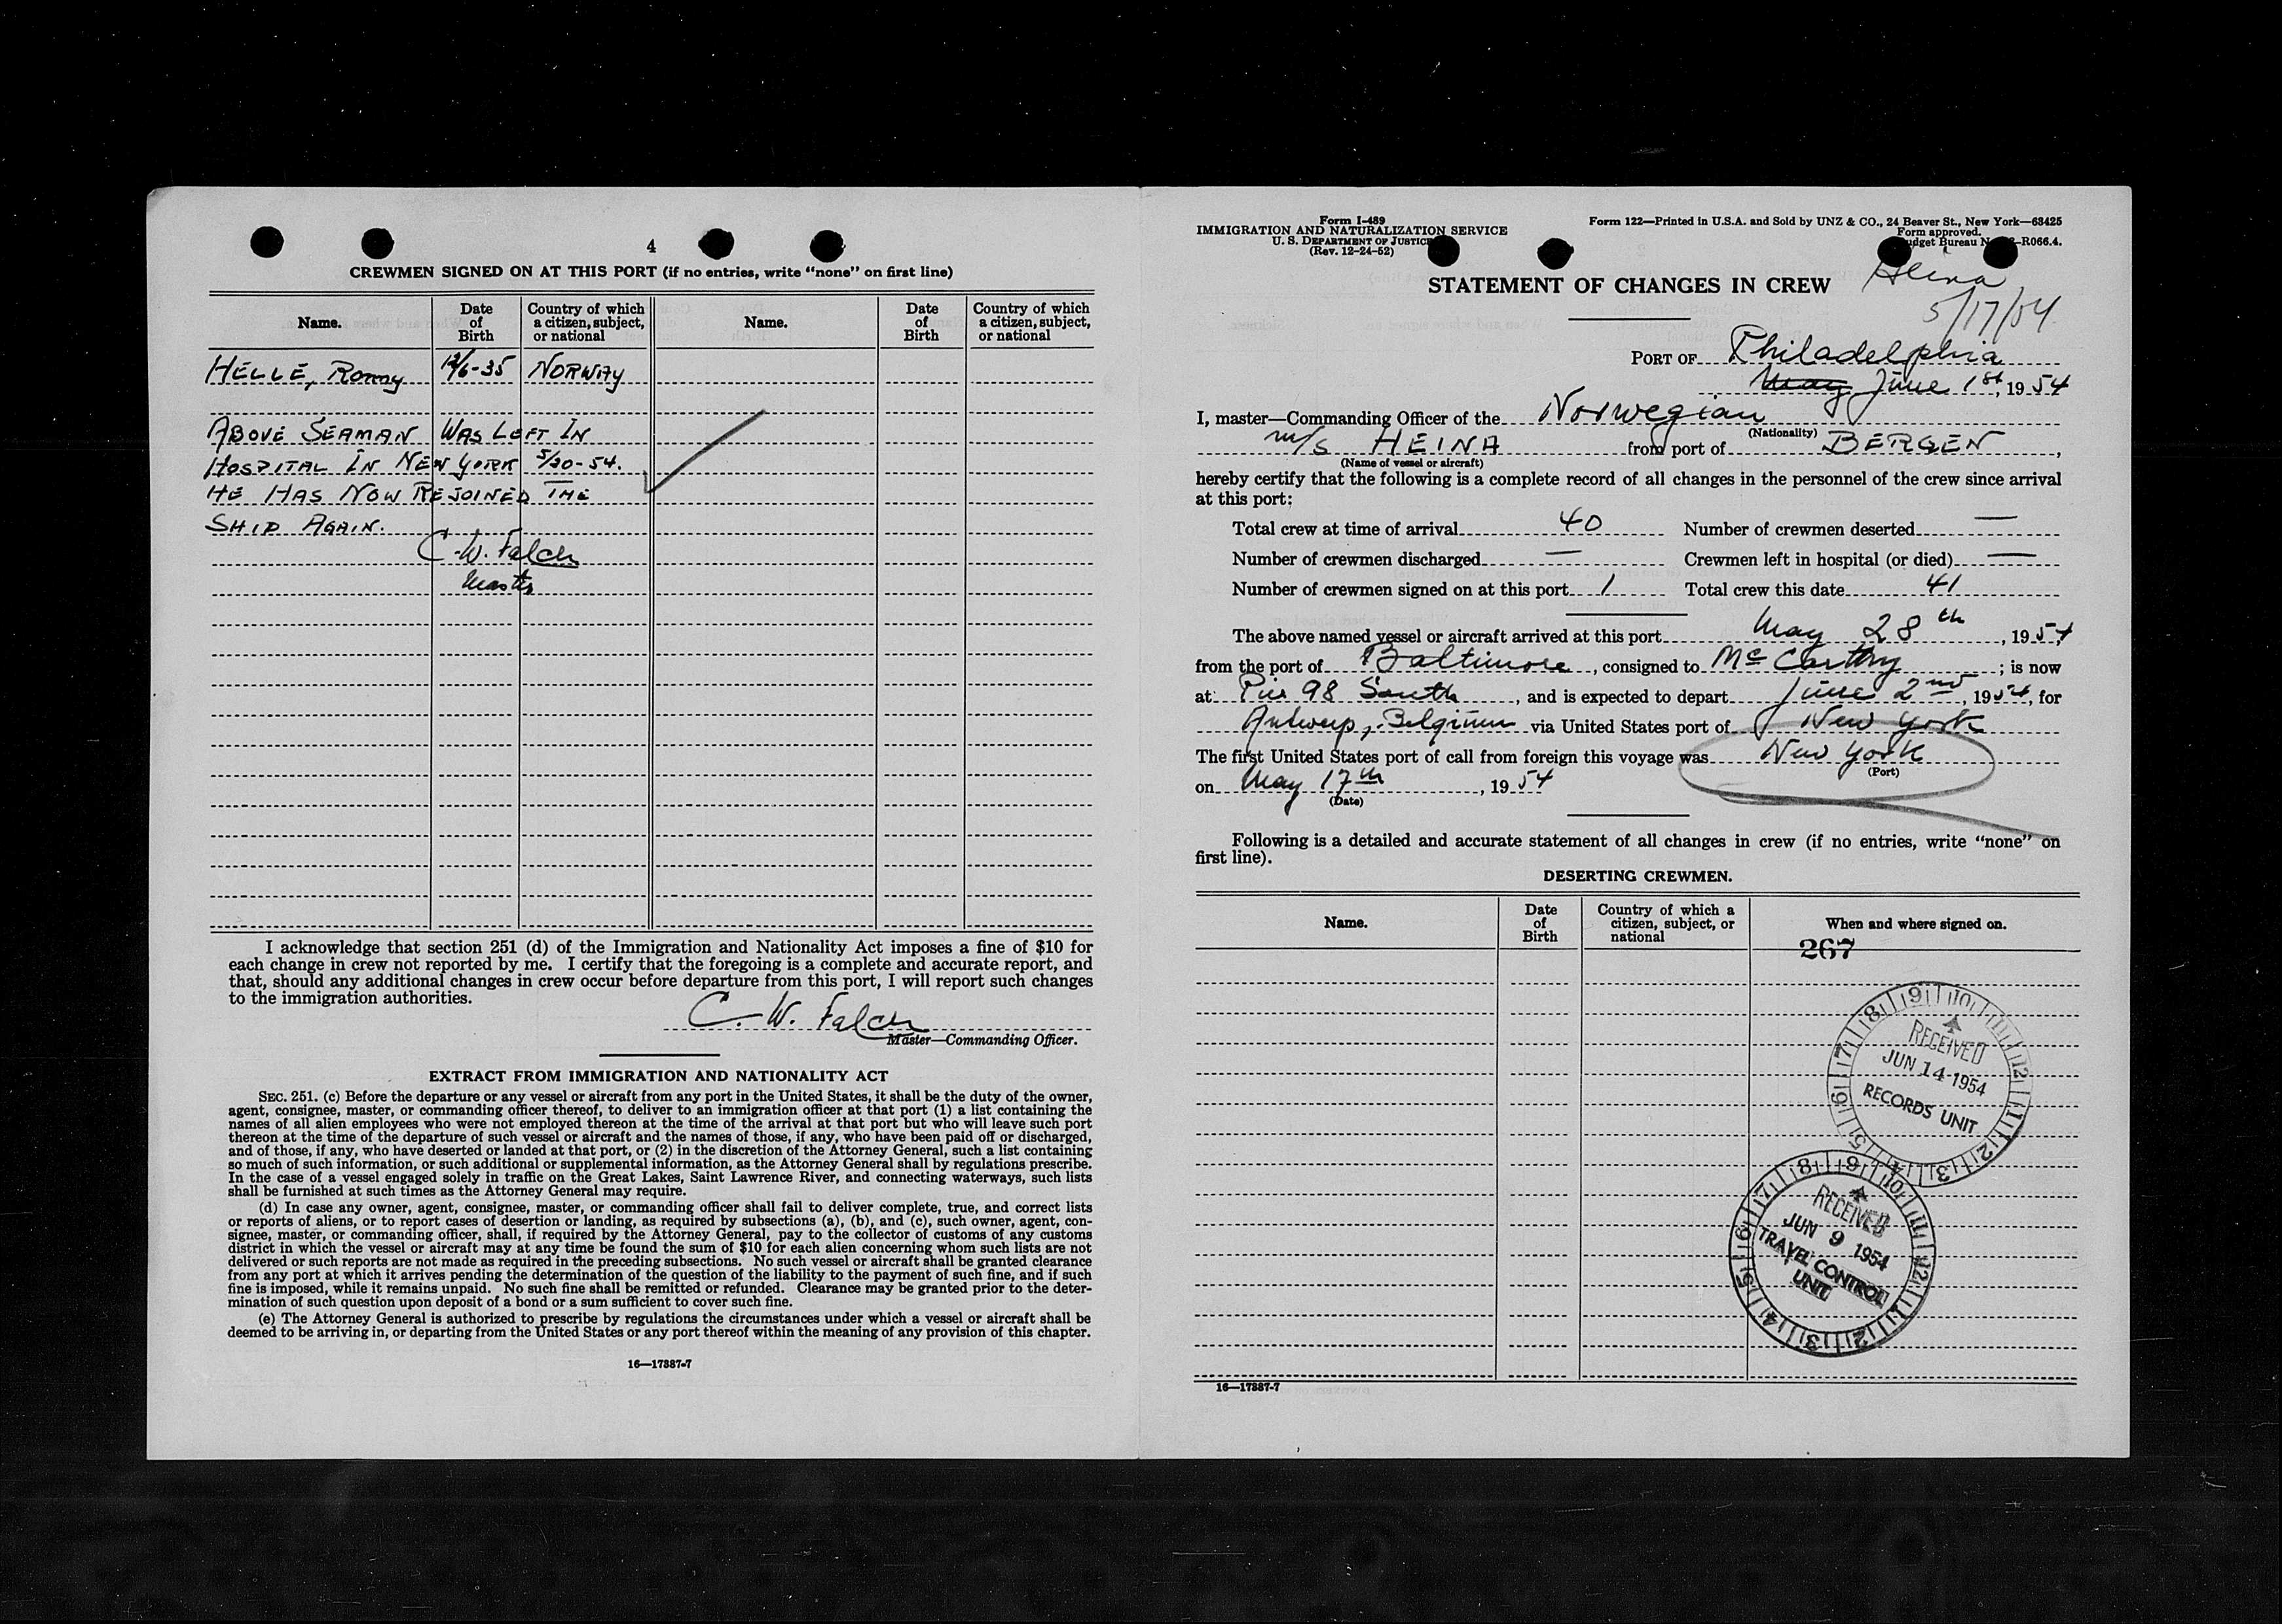 4
CREWMEN SIGNED ON AT THIS PORT (if no entries, write “none” on first line)
Name. Date of Birth Country of which a citizen, subject, or national Name. Date of Birth Country of which a citizen, subject, or national
HELLE, Ronny 12/6-35 NORWAY
ABOVE SEAMAN WAS LEFT IN
HOSPITAL IN NEW YORK 5/20-54.
HE HAS NOW REJOINED THE
SHIP AGAIN.
C.W. Falch
Master
I acknowledge that section 251 (d) of the Immigration and Nationality Act imposes a fine of $10 for
each change in crew not reported by me. I certify that the foregoing is a complete and accurate report, and
that, should any additional changes in crew occur before departure from this port, I will report such changes
to the immigration authorities.
C. W. Falch
Master—Commanding Officer.
EXTRACT FROM IMMIGRATION AND NATIONALITY ACT
SEC. 251. (c) Before the departure or any vessel or aircraft from any port in the United States, it shall be the duty of the owner,
agent, consignee, master, or commanding officer thereof, to deliver to an immigration officer at that port (1) a list containing the
names of all alien employees who were not employed thereon at the time of the arrival at that port but who will leave such port
thereon at the time of the departure of such vessel or aircraft and the names of those, if any, who have been paid off or discharged,
and of those, if any, who have deserted or landed at that port, or (2) in the discretion of the Attorney General, such a list containing
so much of such information, or such additional or supplemental information, as the Attorney General shall by regulations prescribe.
In the case of a vessel engaged solely in traffic on the Great Lakes, Saint Lawrence River, and connecting waterways, such lists
shall be furnished at such times as the Attorney General may require.
(d) In case any owner, agent, consignee, master, or commanding officer shall fail to deliver complete, true, and correct lists
or reports of aliens, or to report cases of desertion or landing, as required by subsections (a), (b), and (c), such owner, agent, con-
signee, master, or commanding officer, shall, if required by the Attorney General, pay to the collector of customs of any customs
district in which the vessel or aircraft may at any time be found the sum of $10 for each alien concerning whom such lists are not
delivered or such reports are not made as required in the preceding subsections. No such vessel or aircraft shall be granted clearance
from any port at which it arrives pending the determination of the question of the liability to the payment of such fine, and if such
fine is imposed, while it remains unpaid. No such fine shall be remitted or refunded. Clearance may be granted prior to the deter-
mination of such question upon deposit of a bond or a sum sufficient to cover such fine.
(e) The Attorney General is authorized to prescribe by regulations the circumstances under which a vessel or aircraft shall be
deemed to be arriving in, or departing from the United States or any port thereof within the meaning of any provision of this chapter.
16—17887-7
Form I-489
IMMIGRATION AND NATURALIZATION SERVICE
U. S. DEPARTMENT OF JUSTICE
(Rev. 12-24-52)
Form 122—Printed in U.S.A. and Sold by UNZ & CO., 24 Beaver St., New York—68425
Form approved.
Budget Bureau N -R066.4.
Heina
5/17/54
STATEMENT OF CHANGES IN CREW
PORT OF Philadelphia
May June 1st, 1954
I, master—Commanding Officer of the Norwegian
(Nationality)
m/s HEINA from port of BERGEN,
(Name of vessel or aircraft)
hereby certify that the following is a complete record of all changes in the personnel of the crew since arrival
at this port:
Total crew at time of arrival 40 Number of crewmen deserted —
Number of crewmen discharged — Crewmen left in hospital (or died) —
Number of crewmen signed on at this port 1 Total crew this date 41
The above named vessel or aircraft arrived at this port May 28th, 1954
from the port of Baltimore, consigned to McCarthy; is now
at Pier 98 South, and is expected to depart June 2nd, 1954, for
Antwerp, Belgium via United States port of New York
The first United States port of call from foreign this voyage was New York
(Port)
on May 17th, 1954
(Date)
Following is a detailed and accurate statement of all changes in crew (if no entries, write “none” on
first line).
DESERTING CREWMEN.
Name. Date of Birth Country of which a citizen, subject, or national When and where signed on.
267
9 10 11 12 1 2 3 4 5 6 7 8
RECEIVED
JUN 14 1954
RECORDS UNIT
8 9 10 11 12 1 2 3 4 5 6 7
RECEIVED
JUN 9 1954
TRAVEL CONTROL
UNIT
16—17887-7